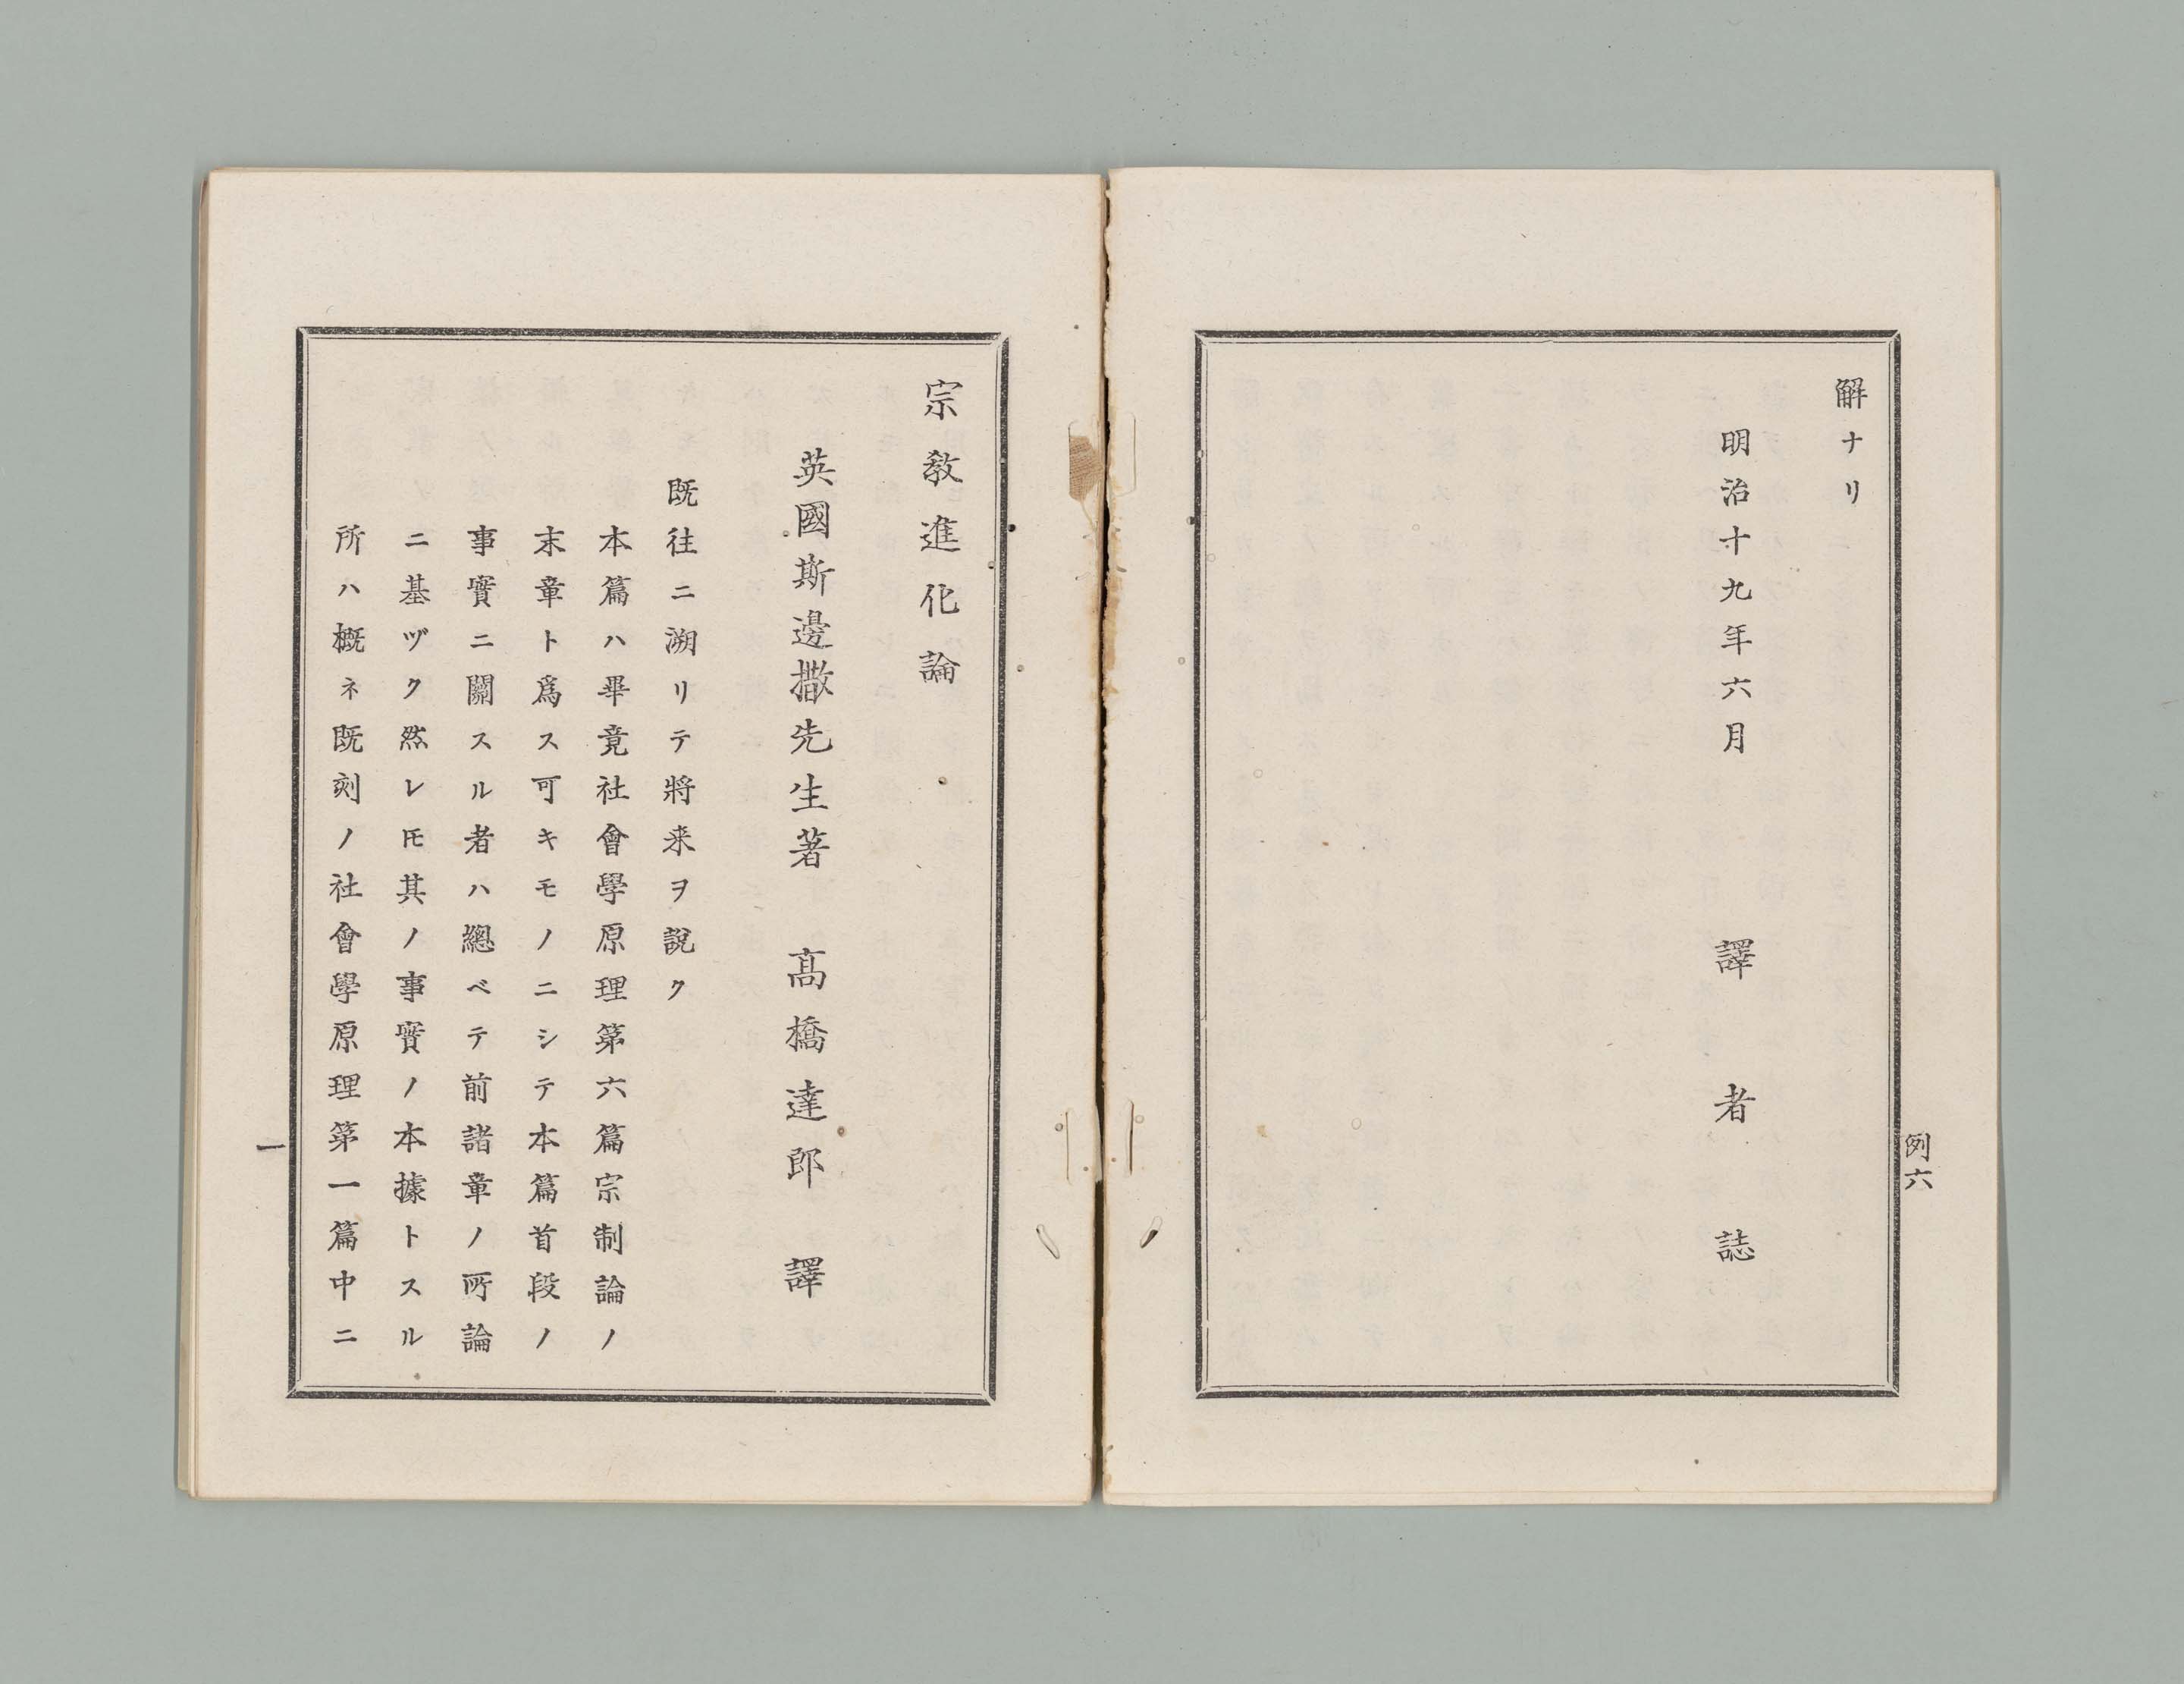 解ナリ
明治十九年六月
譯者誌
例六
宗教進化論
英國斯邊撒先生著 髙橋達郎 譯
既往ニ溯リテ將来ヲ説ク
本篇ハ畢竟社會學原理第六篇宗制論ノ
末章ト爲ス可キモノニシテ本篇首段ノ
事實ニ關スル者ハ總ベテ前諸章ノ所論
ニ基ヅク然レ𪜈其ノ事實ノ本據トスル
所ハ概ネ既刻ノ社會學原理第一篇中ニ
一